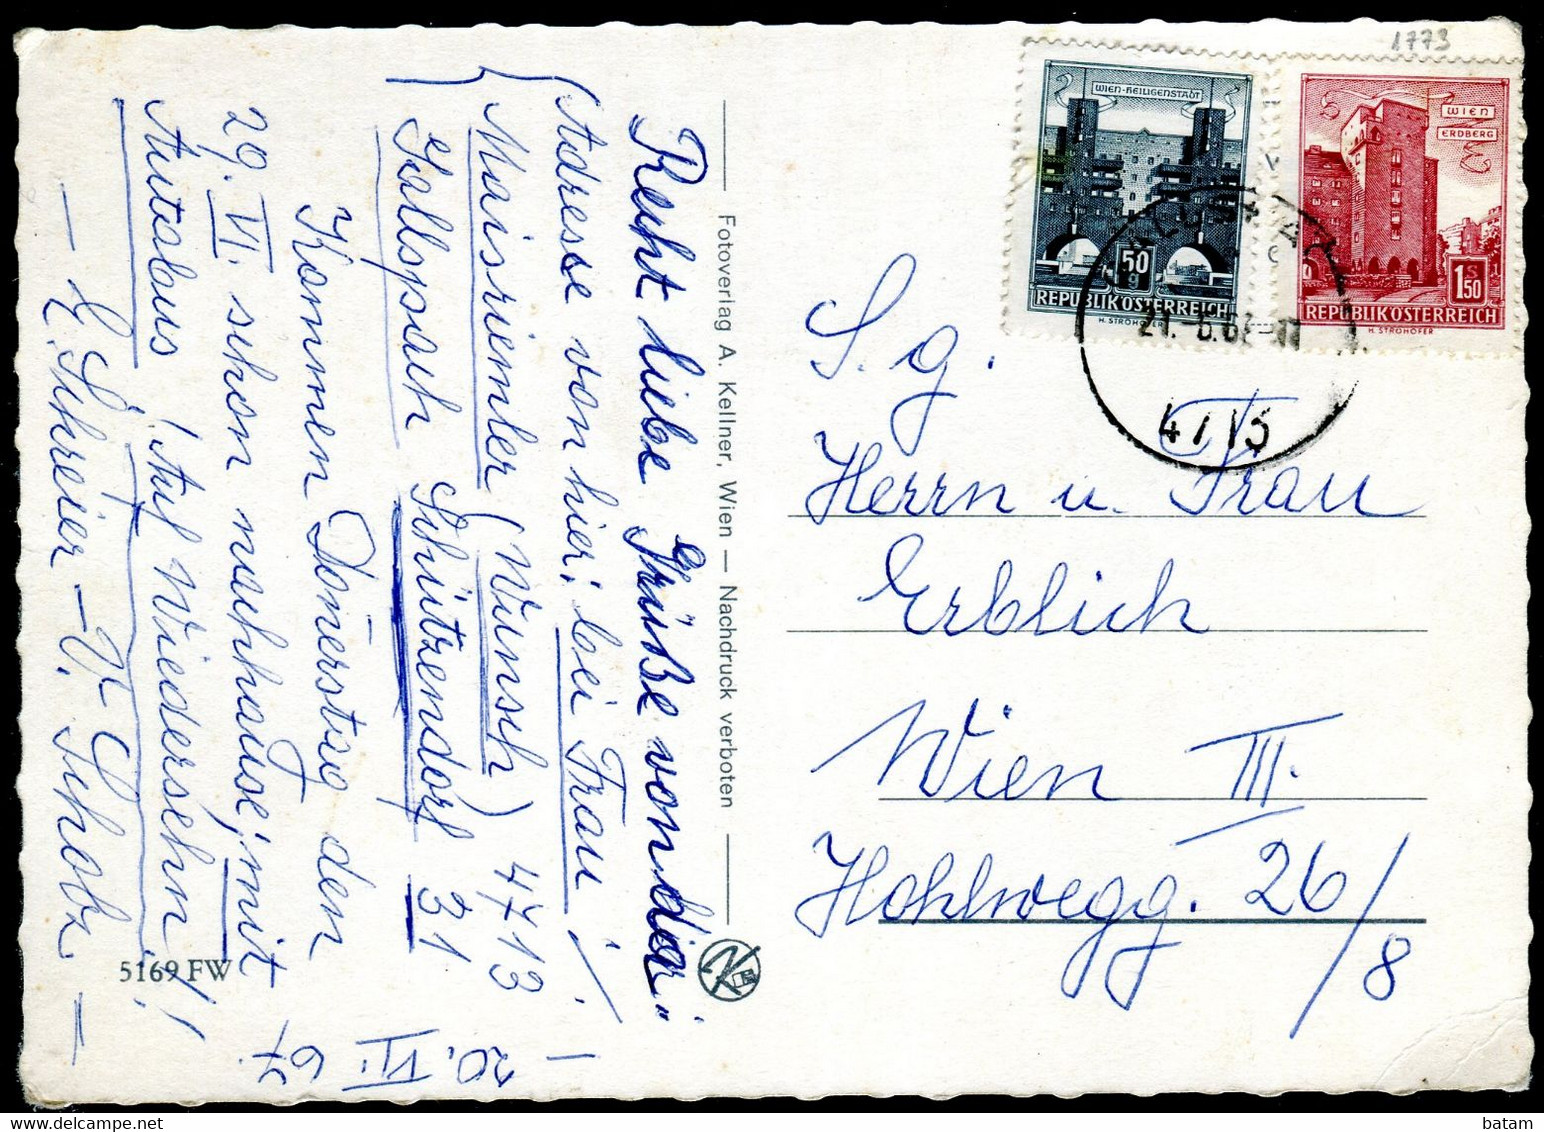 1773
WIEN-HEILIGENSTADT
50
g
REPUBLIK ÖSTERREICH
H. STROHOFER
WIEN
ERDBERG
S
1.50
REPUBLIK ÖSTERREICH
H. STROHOFER
21.-6.67-
4713
S. g.
Herrn u. Frau
Erblich
Wien III.
Hohlwegg. 26/
8
Fotoverlag A. Kellner, Wien — Nachdruck verboten
5169 FW
— 20. VI. 67.
Recht liebe Grüße von hier"
(Adresse von hier; bei Frau
Maisriemler (Wunsch) 4713
Gallspach Schützendorf 31
Kommen Donerstag den
29. VI. schon nachhause; mit
Autobus! Auf Wiedersehn!!
batam